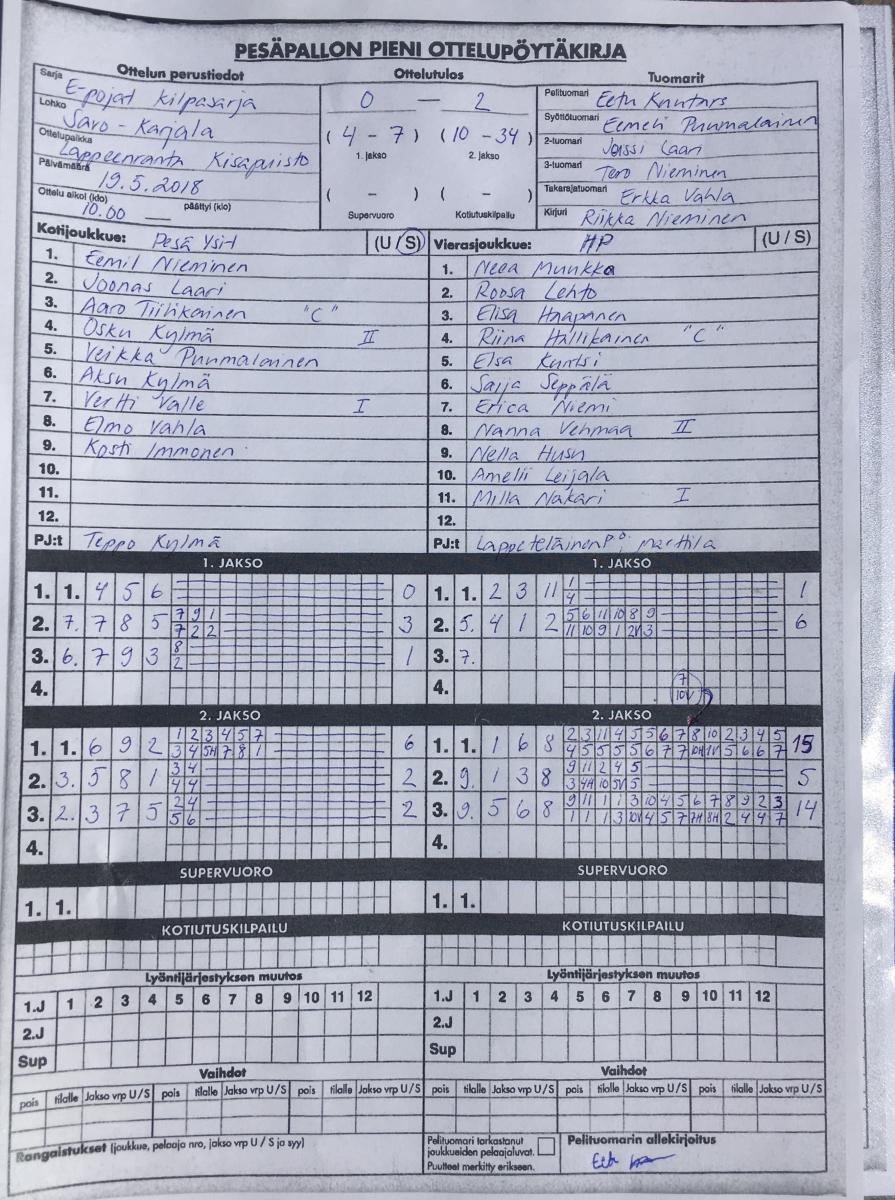 PESÄPALLON PIENI OTTELUPÖYTÄKIRJA
Ottelun perustiedot Ottelutulos Tuomarit
Sarja E-pojat kilpasarja
Lohko Savo - Karjala
Ottelupaikka Lappeenranta Kisapuisto
Päivämäärä 19.5.2018
Ottelu alkoi (klo) 10.00 päättyi (klo)
0 — 2
( 4 - 7 ) ( 10 - 34 )
1. jakso 2. jakso
( - ) ( - )
Supervuoro Kotiutuskilpailu
Pelituomari Eetu
Syöttötuomari Eemeli Puumalainen
2-tuomari Jussi Laari
3-tuomari Tero Nieminen
Takarajatuomari Erkka Vahla
Kirjuri Riikka Nieminen
Kotijoukkue: Pesä Ysit (U / S)
1. Eemil Nieminen
2. Joonas Laari
3. Aaro Tiilikainen "C"
4. Osku Kylmä II
5. Veikka Puumalainen
6. Aksu Kylmä
7. Vertti Valle I
8. Elmo Vahla
9. Kosti Immonen
10.
11.
12.
PJ:t Teppo Kylmä
Vierasjoukkue: HP (U / S)
1. Neea Munkka
2. Roosa Lehto
3. Elisa Haapanen
4. Riina Hallikainen "C"
5. Elsa Kuntsi
6. Saija Seppälä
7. Erica Niemi
8. Nanna Vehmaa II
9. Nella Husu
10. Amelii Leijala
11. Milla Nakari I
12.
PJ:t Lappeteläinen P Ö; Marttila
1. JAKSO
1. 1. 4 5 6 0
2. 7. 7 8 5 7 9 1 3
7 2 2
3. 6. 7 9 3 8 1
2
4.
1. JAKSO
1. 1. 2 3 11 1 1
4
2. 5. 4 1 2 5 6 11 10 8 9 6
11 10 9 1 2V 3
3. 7.
4.
7
10V
2. JAKSO
1. 1. 6 9 2 1 2 3 4 5 7 6
3 4 5H 7 8 1
2. 3. 5 8 1 3 4 2
4 4
3. 2. 3 7 5 2 4 2
5 6
4.
2. JAKSO
1. 1. 1 6 8 2 3 11 4 5 5 6 7 8 10 2 3 4 5 15
4 5 5 5 5 6 7 7 10H 1V 5 6 6 7
2. 9. 1 3 8 9 11 2 4 5 5
3 4H 10 5V 5
3. 9. 5 6 8 9 11 1 1 3 10 4 5 6 7 8 9 2 3 14
1 1 1 3 10V 4 5 7 7H 8H 2 4 4 7
4.
SUPERVUORO
1. 1.
SUPERVUORO
1. 1.
KOTIUTUSKILPAILU
KOTIUTUSKILPAILU
Lyöntijärjestyksen muutos
1.J 1 2 3 4 5 6 7 8 9 10 11 12
2.J
Sup
Lyöntijärjestyksen muutos
1.J 1 2 3 4 5 6 7 8 9 10 11 12
2.J
Sup
Vaihdot
pois tilalle Jakso vrp U/S pois tilalle Jakso vrp U/S pois tilalle Jakso vrp U/S
Vaihdot
pois tilalle Jakso vrp U/S pois tilalle Jakso vrp U/S pois tilalle Jakso vrp U/S
Rangaistukset (joukkue, pelaaja nro, jakso vrp U / S ja syy)
Pelituomari tarkastanut
joukkueiden pelaajaluvat.
Puutteet merkitty erikseen.
Pelituomarin allekirjoitus